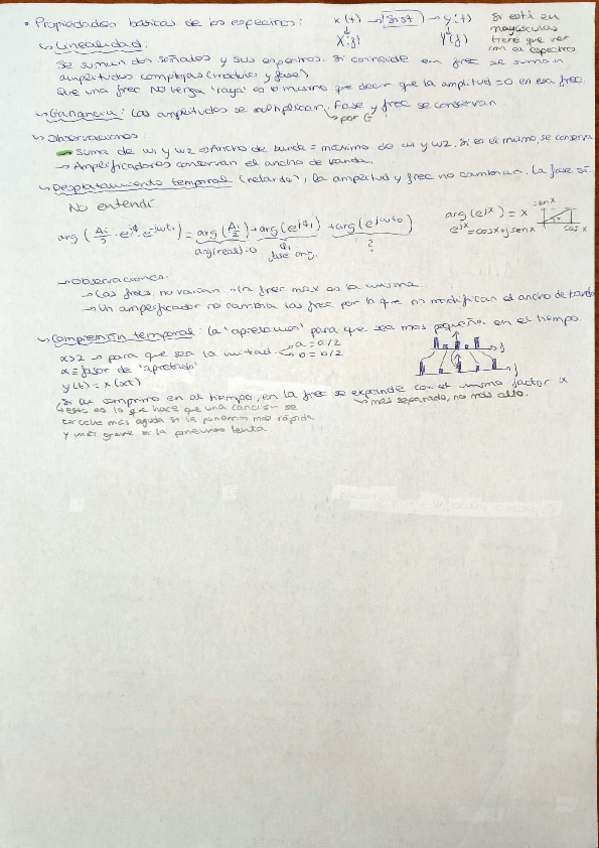 • Propiedades básicas de los espectros: x(t) → Sist → y(t) Si está en
X(f) Y(f) mayúsculas
tiene que ver
con el espectro
↳ Linealidad:
Se suman dos señales y sus espectros. Si coincide en frec se suman
amplitudes complejas (módulo y fase)
Que una frec NO tenga 'raya' es lo mismo que decir que la amplitud = 0 en esa frec.
↳ Ganancia: Las amplitudes se multiplican. Fase y frec se conservan
↳ por G
↳ Observaciones
→ Suma de w1 y w2 → Ancho de banda = máximo de w1 y w2. Si es el mismo, se conserva
→ Amplificadores conservan el ancho de banda.
↳ Desplazamiento temporal (retardo), la amplitud y frec no cambian. La fase sí.
No entendí
arg(Ai/2 · e^jφi · e^-jωto) = arg(Ai/2) + arg(e^jφi) + arg(e^jωto)
arg(real)=0 φi ?
fase orig.
arg(e^jx) = x
e^jx = cosx + j senx
sen x
cos x
→ Observaciones:
→ Las frecs. no varían → la frec max es la misma.
→ Un amplificador no cambia las frec por lo que no modifican el ancho de banda
↳ Compresión temporal: la 'apretamos' para que sea más pequeña en el tiempo.
α>2 → para que sea la mitad. a = a/2
b = b/2
α = factor de 'apretado'
y(t) = x(αt)
Si se comprime en el tiempo, en la frec se expande con el mismo factor α
↳ más separado, no más alto.
↳ esto es lo que hace que una canción se
escuche más aguda si la ponemos más rápida
y más grave si la ponemos lenta